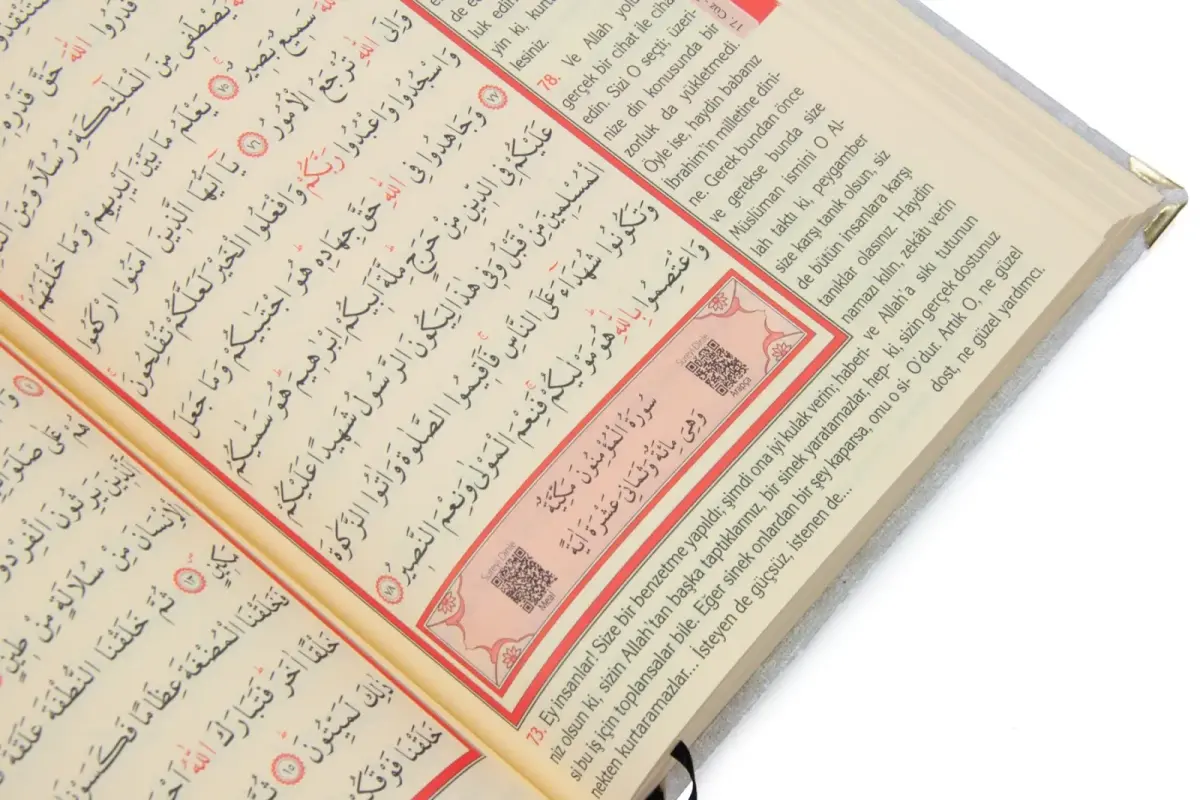 قَدَرُوا اللّٰهَ حَقَّ قَدْرِهِ
يَصْطَفِي مِنَ الْمَلٰٓئِكَةِ رُسُلًا وَمِنَ
سَمِيعٌ بَصِيرٌ ٧٥ يَعْلَمُ مَا بَيْنَ اَيْدِيهِمْ وَمَا خَلْفَهُمْ
وَاِلَى اللّٰهِ تُرْجَعُ الْاُمُورُ ٧٦ يَٓا اَيُّهَا الَّذِينَ اٰمَنُوا ارْكَعُوا
وَاسْجُدُوا وَاعْبُدُوا رَبَّكُمْ وَافْعَلُوا الْخَيْرَ لَعَلَّكُمْ تُفْلِحُونَ
٧٧ وَجَاهِدُوا فِي اللّٰهِ حَقَّ جِهَادِهِ هُوَ اجْتَبٰيكُمْ وَمَا جَعَلَ
عَلَيْكُمْ فِي الدِّينِ مِنْ حَرَجٍ مِلَّةَ اَبِيكُمْ اِبْرٰهِيمَ هُوَ سَمّٰيكُمُ
الْمُسْلِمِينَ مِنْ قَبْلُ وَفِي هٰذَا لِيَكُونَ الرَّسُولُ شَهِيدًا عَلَيْكُمْ
وَتَكُونُوا شُهَدَٓاءَ عَلَى النَّاسِ فَاَقِيمُوا الصَّلٰوةَ وَاٰتُوا الزَّكٰوةَ
وَاعْتَصِمُوا بِاللّٰهِ هُوَ مَوْلٰيكُمْ فَنِعْمَ الْمَوْلٰى وَنِعْمَ النَّصِيرُ ٧٨
سُورَةُ الْمُؤْمِنُونَ مَكِّيَّةٌ
وَهِيَ مِائَةٌ وَثَمَانِيَ عَشْرَةَ اٰيَةً
Sureyi Dinle
Arapça
Sureyi Dinle
Meal
17. Cüz
luk edin
yin ki, kurtu
lesiniz.
78. Ve Allah yolu
gerçek bir cihat ile ciha
edin. Sizi O seçti; üzeri-
nize din konusunda bir
zorluk da yükletmedi.
Öyle ise, haydin babanız
İbrahim'in milletine dini-
ne. Gerek bundan önce
ve gerekse bunda size
Müslüman ismini O Al-
lah taktı ki, peygamber
size karşı tanık olsun, siz
de bütün insanlara karşı
tanıklar olasınız. Haydin
namazı kılın, zekâtı verin
ve Allah'a sıkı tutunun
ki, sizin gerçek dostunuz
O'dur. Artık O, ne güzel
dost, ne güzel yardımcı.
73. Ey insanlar! Size bir benzetme yapıldı; şimdi ona iyi kulak verin; haberi-
niz olsun ki, sizin Allah'tan başka taptıklarınız, bir sinek yaratamazlar, hep-
si bu iş için toplansalar bile. Eğer sinek onlardan bir şey kaparsa, onu o si-
nekten kurtaramazlar... İsteyen de güçsüz, istenen de...
الَّذِينَ يَرِثُونَ الْفِرْدَوْ
الْاِنْسَانَ مِنْ سُلَالَةٍ مِنْ طِينٍ
مَكِينٍ ١٣ ثُمَّ خَلَقْنَا النُّطْفَةَ عَلَقَةً
فَخَلَقْنَا الْمُضْغَةَ عِظَامًا فَكَسَوْنَا
خَلْقًا اٰخَرَ فَتَبَارَكَ اللّٰهُ اَحْ
ذٰلِكَ لَمَيِّتُونَ ١٥ ثُمَّ
خَلَقْنَا فَوْقَكُمْ